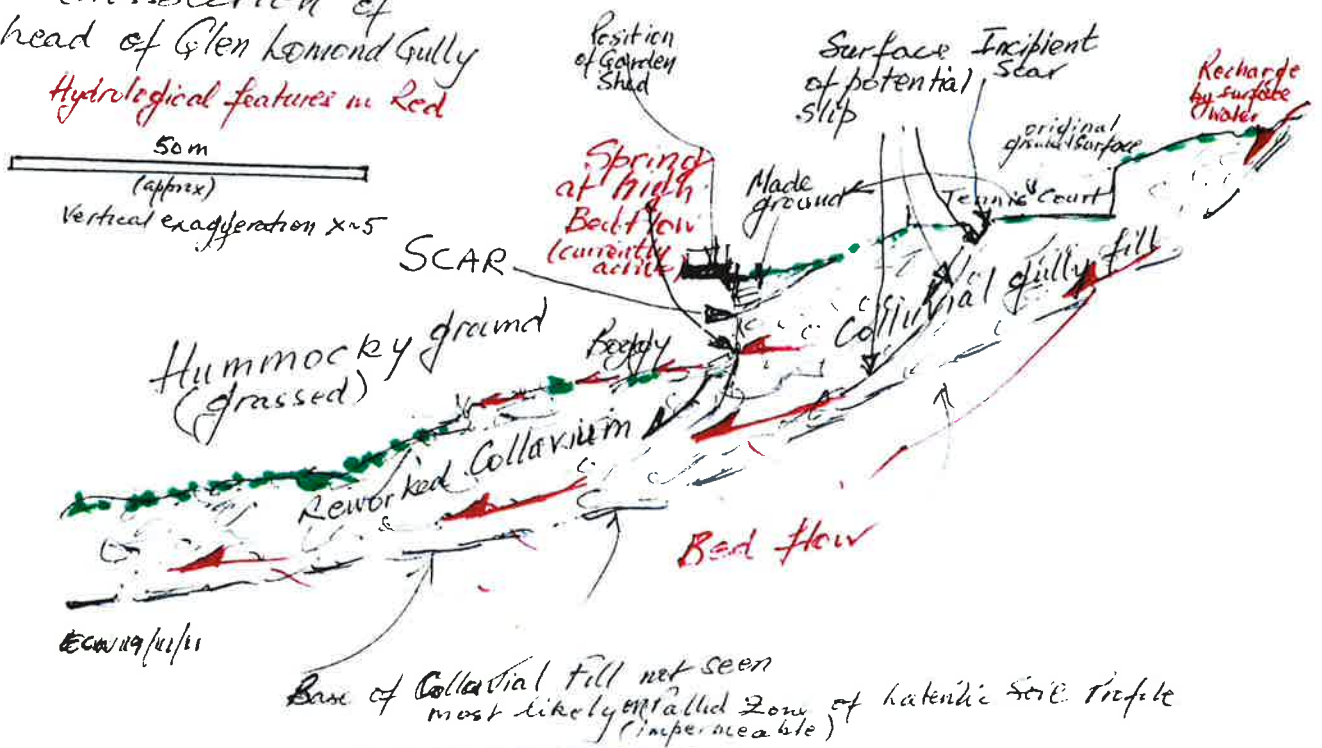 head of Glen Lomond Gully
Hydrological features in Red
50m
(approx)
Vertical exaggeration x~5
Position
of Garden
Shed
Surface
of potential
slip
Incipient
Scar
Recharge
by surface
water
original
ground surface
Spring
at high
Bed flow
(currently
active)
Made
ground
Tennis Court
SCAR
Colluvial gully fill
Hummocky ground
(grassed)
Boggy
Reworked Colluvium
Bed flow
Base of Colluvial Fill not seen
most likely Zone of Lateritic Soil Profile
(impermeable)